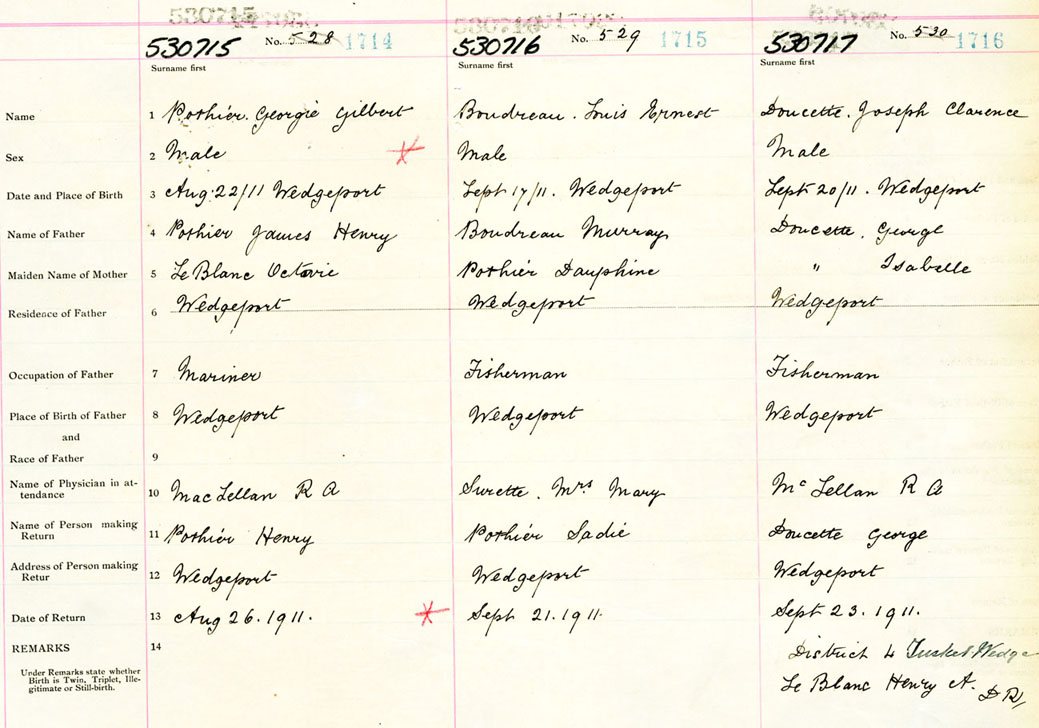 530715 No. 528 1714 530716 No. 529 1715 530717 No. 530 1716
Surname first Surname first Surname first
Name 1 Pothier. Georgie Gilbert Boudreau. Louis Ernest Doucette. Joseph Clarence
Sex 2 Male Male Male
Date and Place of Birth 3 Aug. 22/11 Wedgeport Sept 17/11. Wedgeport Sept 20/11. Wedgeport
Name of Father 4 Pothier James Henry Boudreau Murray Doucette. George
Maiden Name of Mother 5 Le Blanc Octavie Pothier Dauphine " Isabelle
Residence of Father 6 Wedgeport Wedgeport Wedgeport
Occupation of Father 7 Mariner Fisherman Fisherman
Place of Birth of Father 8 Wedgeport Wedgeport Wedgeport
and
Race of Father 9
Name of Physician in at-
tendance 10 MacLellan R A Surette. Mrs Mary McLellan R A
Name of Person making
Return 11 Pothier Henry Pothier Sadie Doucette George
Address of Person making
Retur 12 Wedgeport Wedgeport Wedgeport
Date of Return 13 Aug 26. 1911. Sept 21. 1911. Sept 23. 1911.
REMARKS 14
District 4 Tusket Wedge
Under Remarks state whether
Birth is Twin, Triplet, Ille-
gitimate or Still-birth.
Le Blanc Henry A. D R,